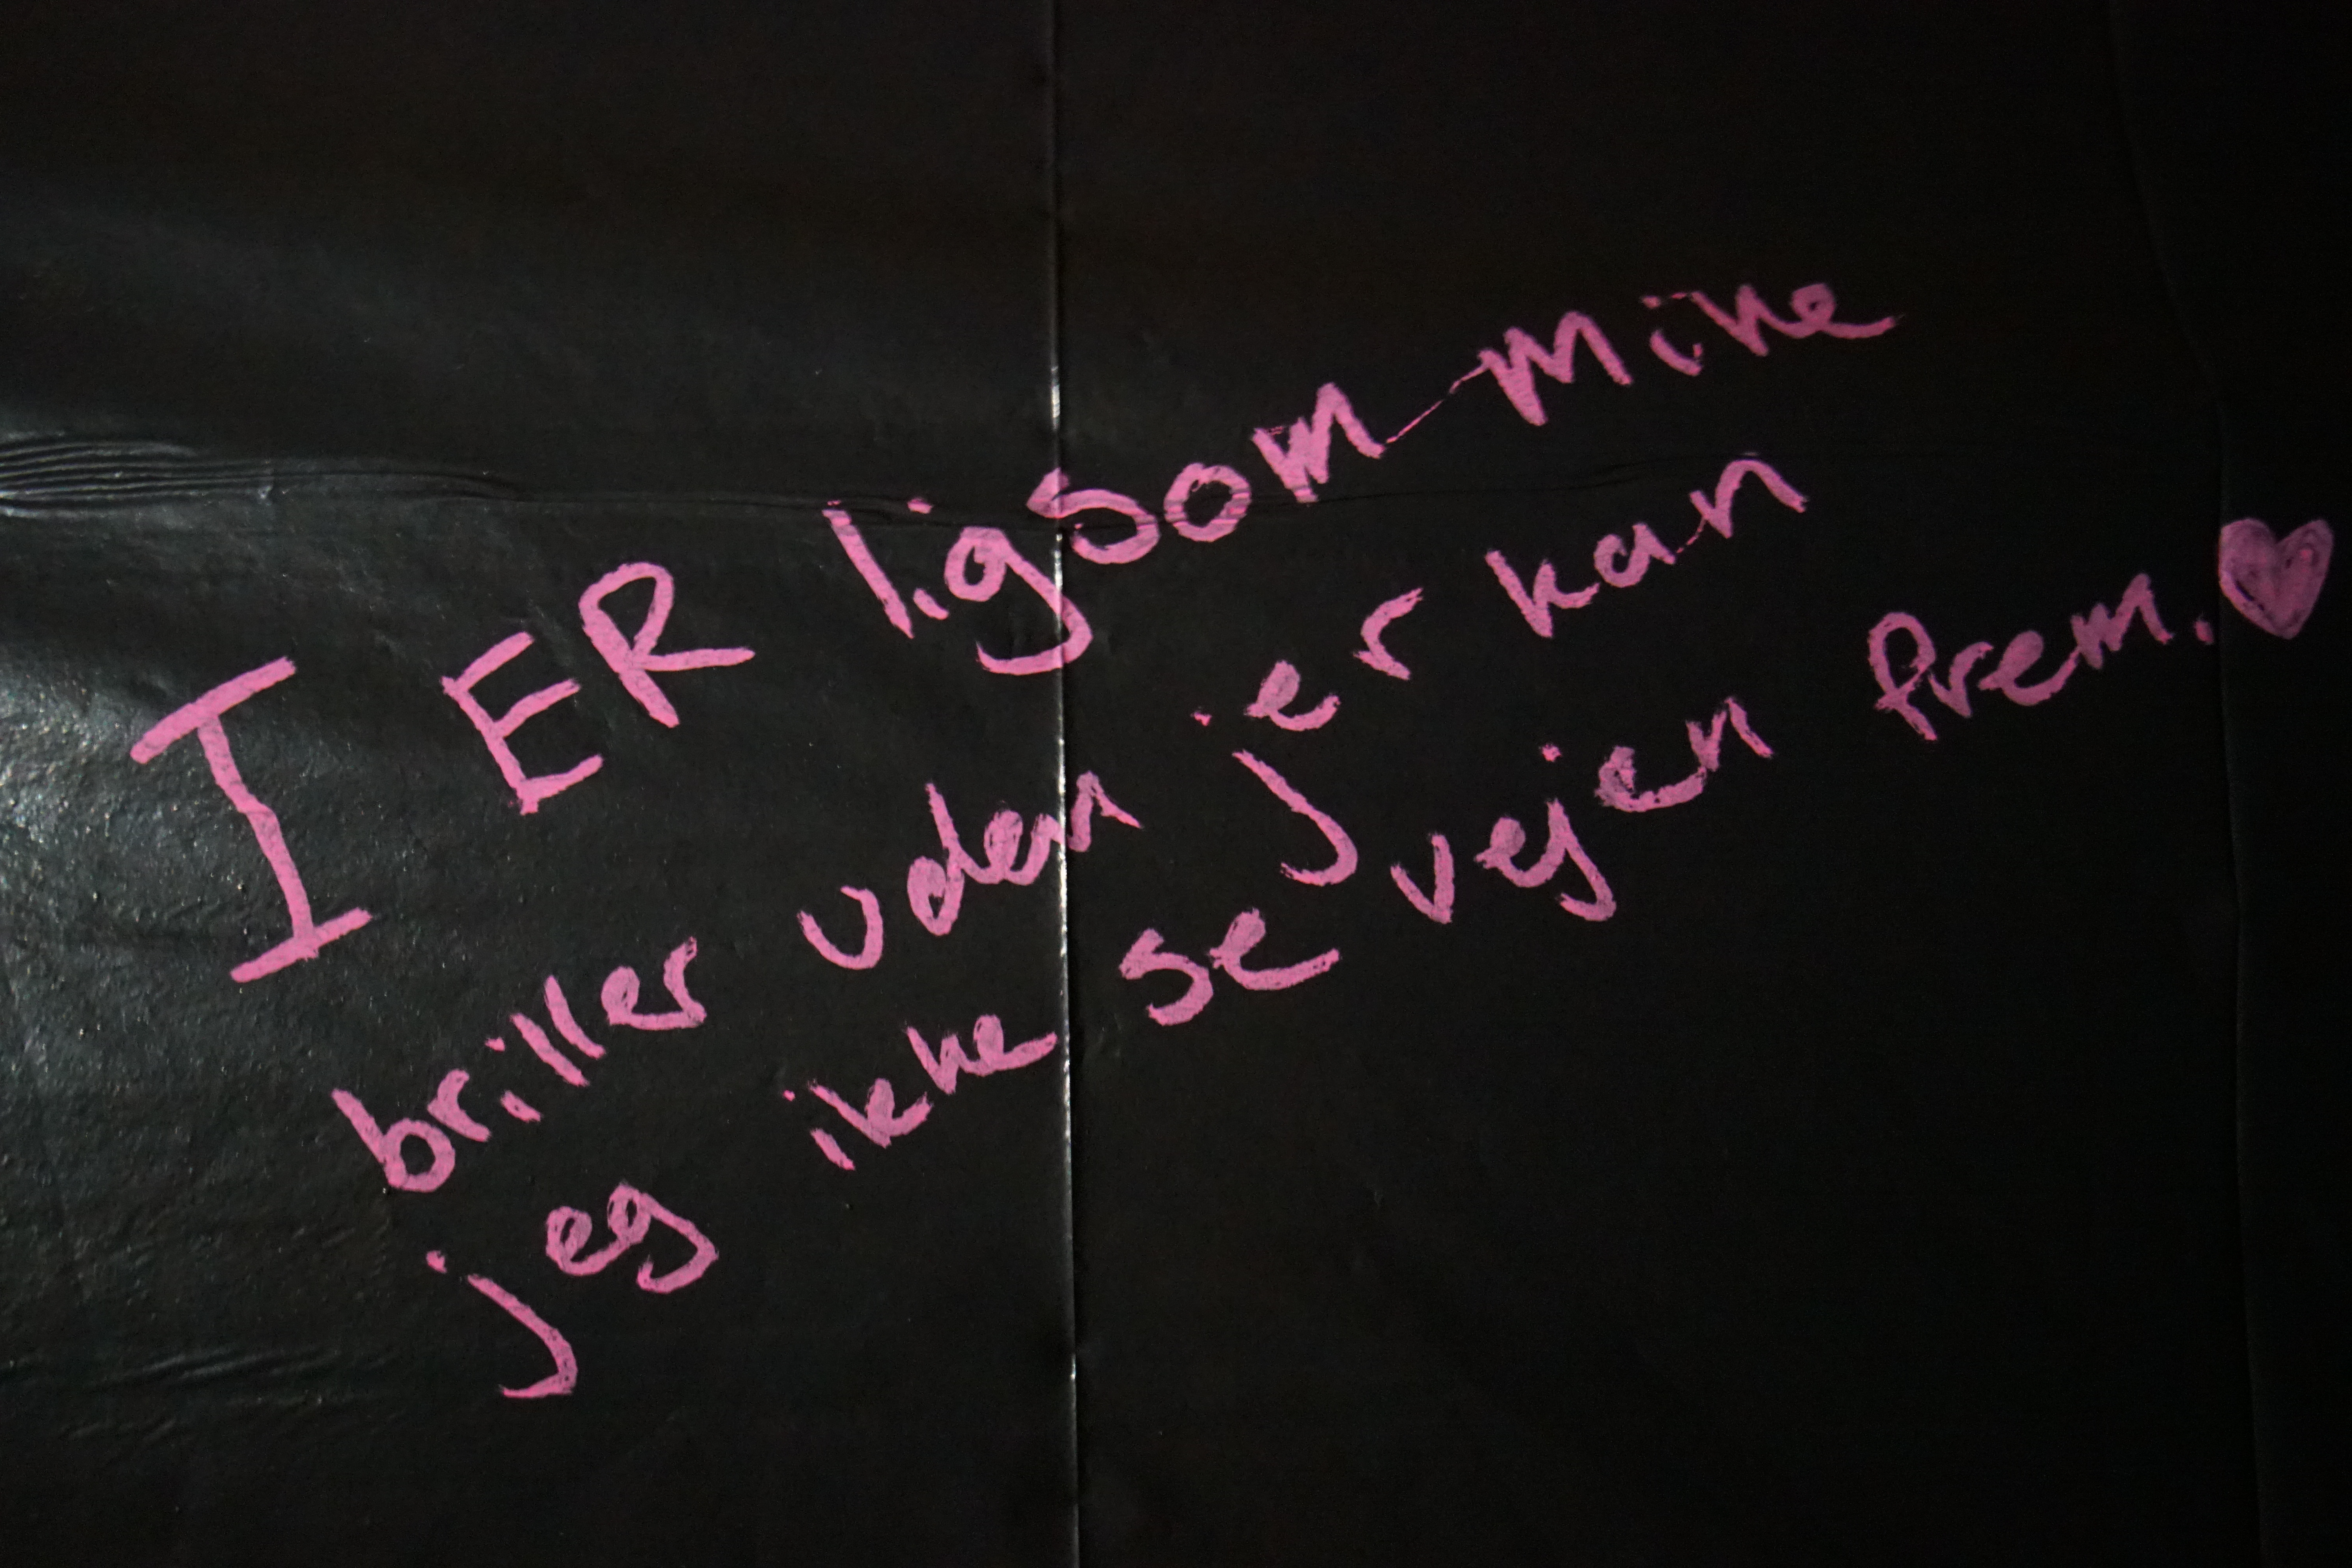 I ER ligsom mine
briller uden jer kan
jeg ikke se vejen frem.